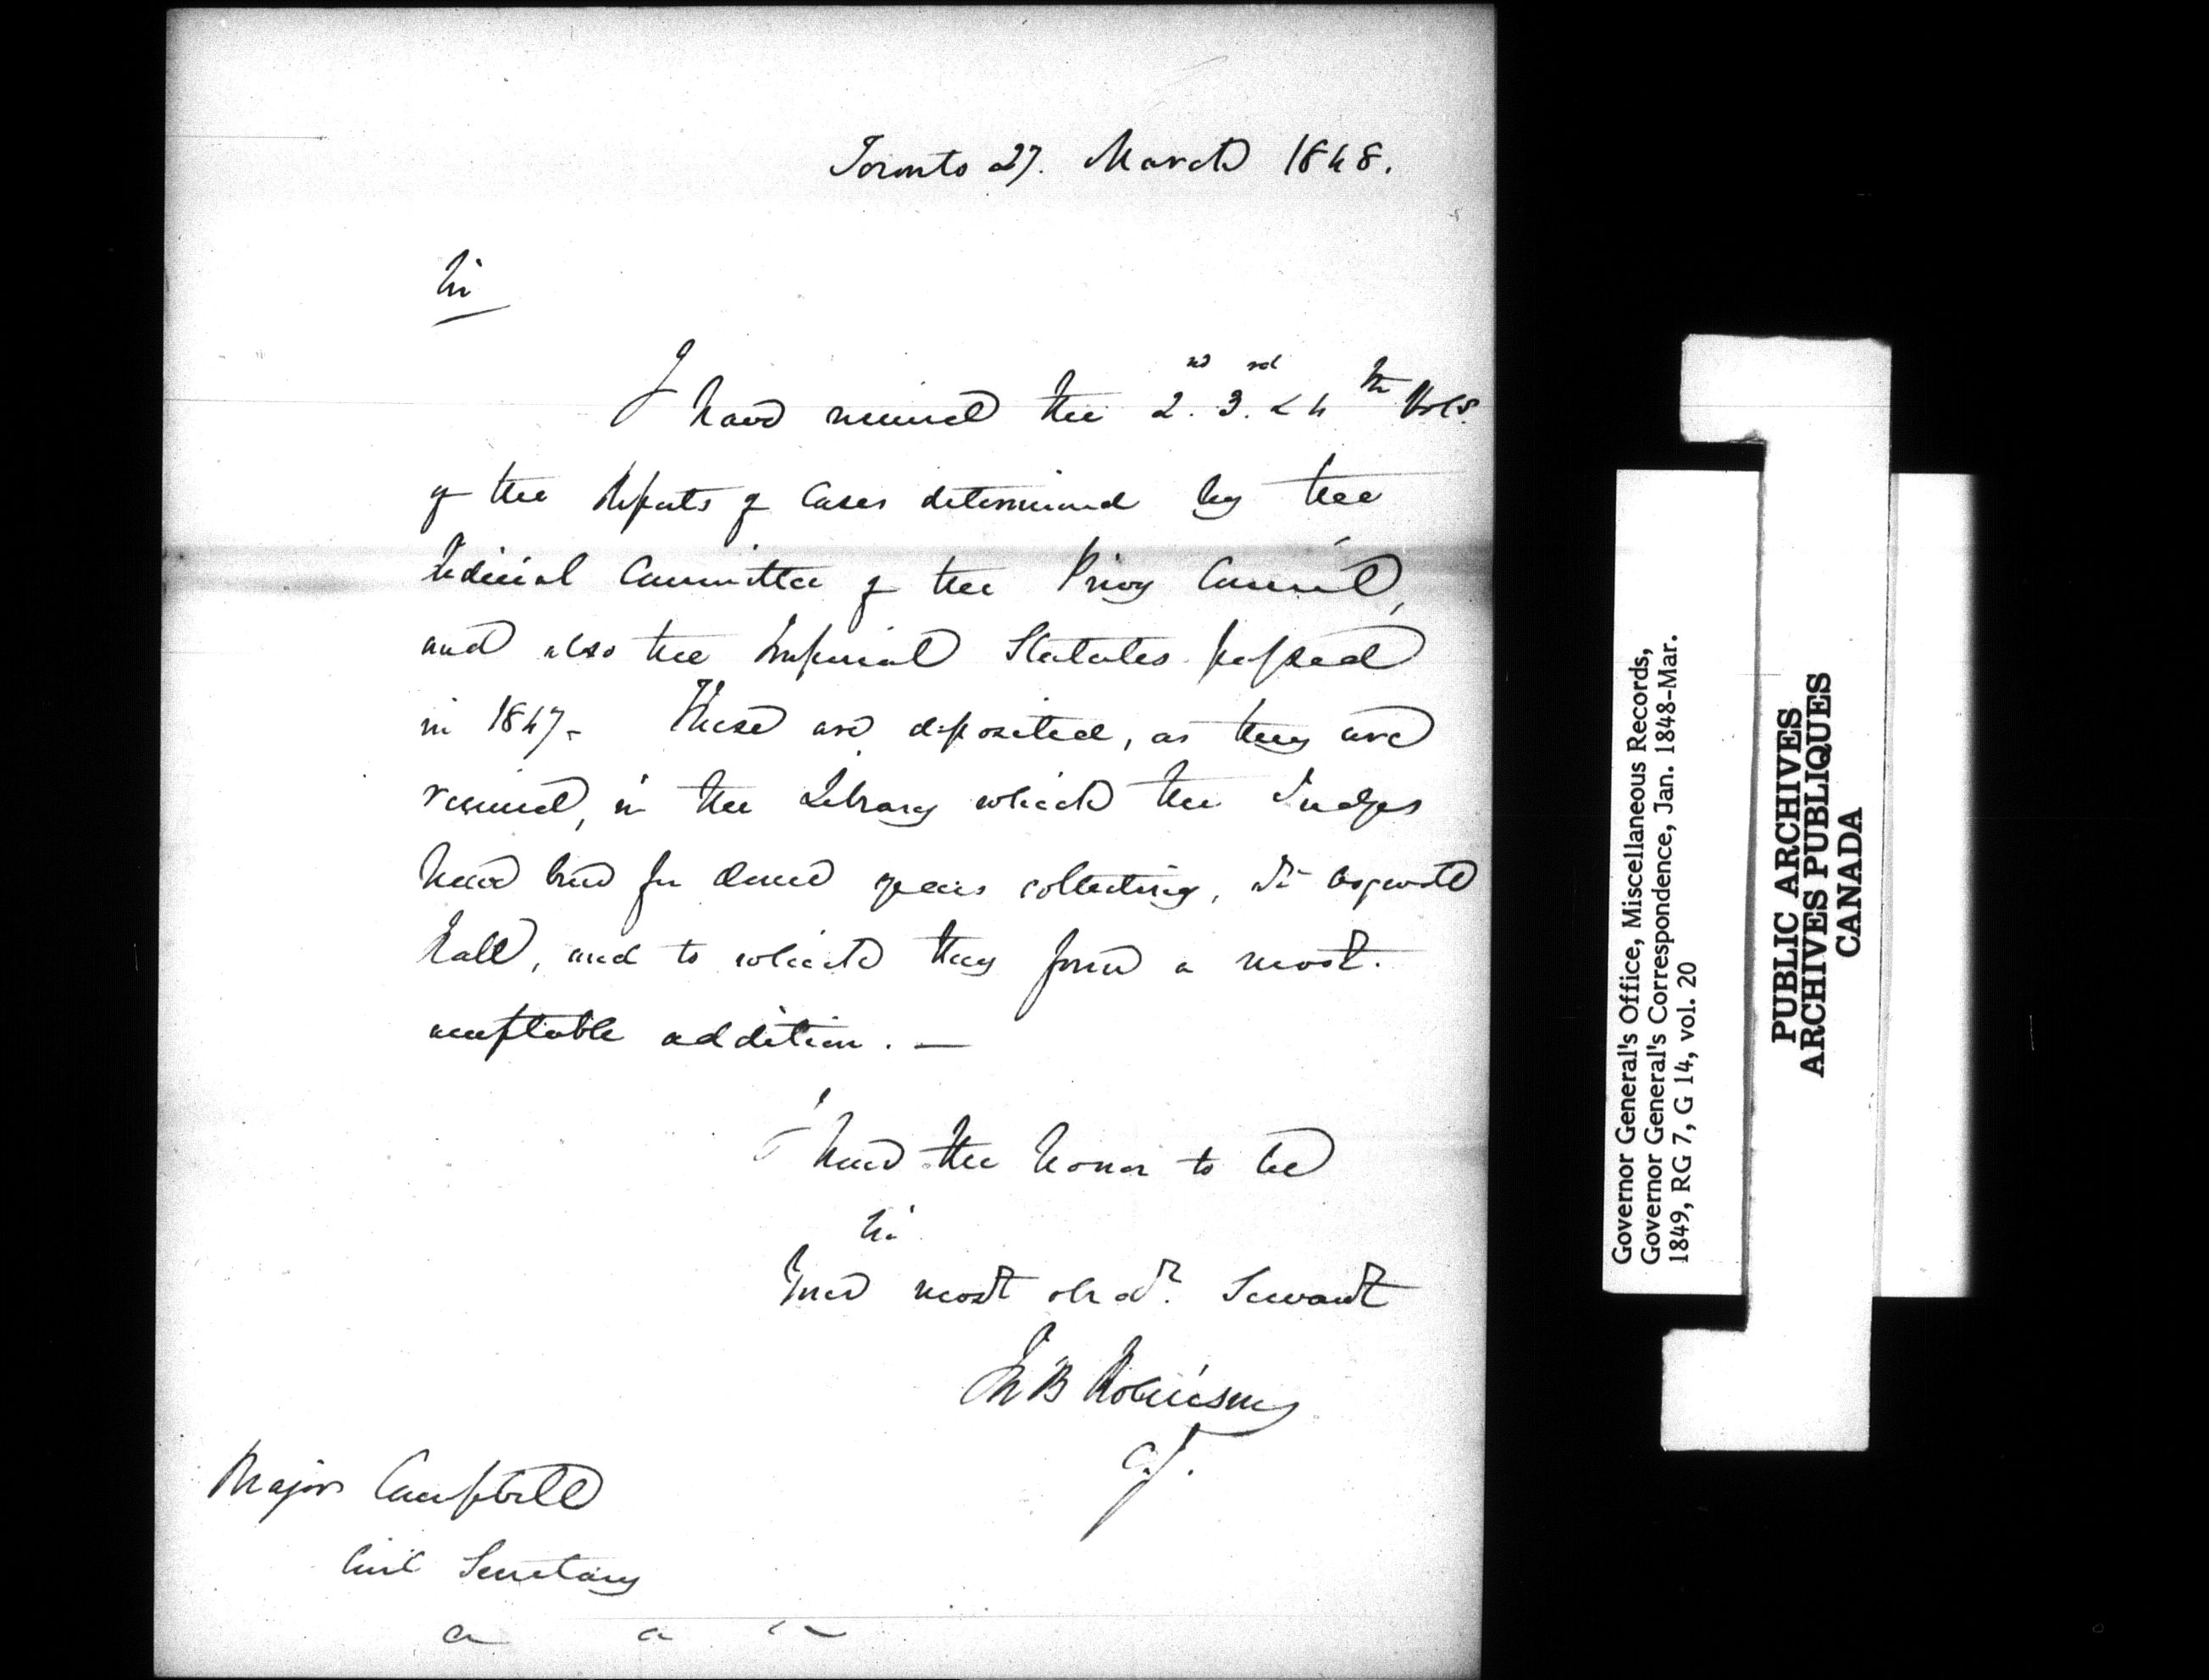 Toronto 27. March 1848.
Sir
I have received the 2.nd 3.rd & 4th Vols.
of the Reports of Cases determined by the
Judicial Committee of the Privy Council,
and also the Imperial Statutes passed
in 1847- These are deposited, as they are
received, in the Library which the Judges
have been for some years collecting, at Osgoode
Hall, and to which they form a most
acceptable addition. —
I have the honor to be
Sir
Your most obed.t Servant
Jno B Robinson
C.J.
Major Campbell
Civil Secretary
Governor General's Office, Miscellaneous Records,
Governor General's Correspondence, Jan. 1848-Mar.
1849, RG 7, G 14, vol. 20
PUBLIC ARCHIVES
ARCHIVES PUBLIQUES
CANADA